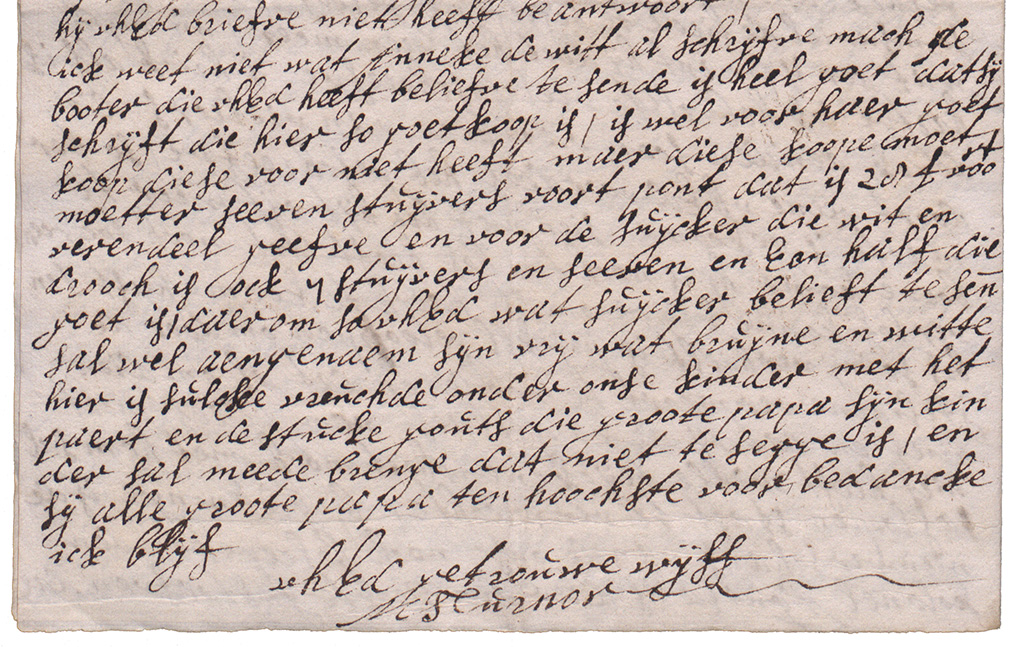 hij uhEd briefve niet heeft beantwoort /
ick weet niet wat Anneke de witt al schrijfve mach de
booter die uhEd heeft beliefve te sende is heel goet dat sij
schrijft die hier so goetkoop is / is wel voor haer goet
koop diese voor niet heeft maer diese koope moet
moetter seeven stuijvers voort pont dat is 28 st voor
verendeel geefve en voor de suijcker die wit en
drooch is ock 7 stuijvers en seeven en Een half die
goet is / daer om so uhEd wat suijcker belieft te sen
sal wel aengenaem sijn vrij wat bruijne en witte
hier is sulcke vreuchde onder onse kinder met het
paert en de stucke gouts die groote papa sijn kin
der sal meede brenge dat niet te segge is / en
sij alle groote papa ten hoochste voor bedancke
ick blijf
uhEd getrouwe wijff
M Turnor